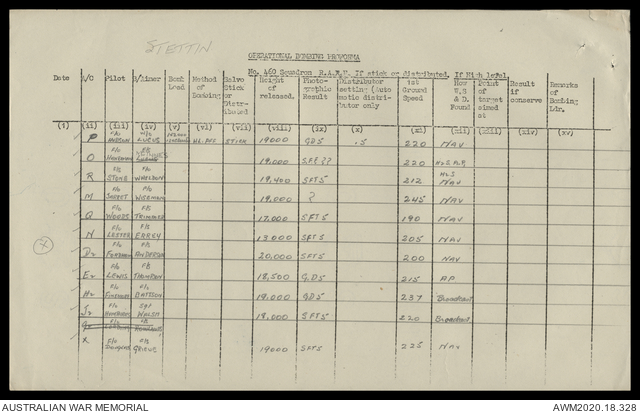 STETTIN
OPERATIONAL BOMBING PROFORMA
No. 460 Squadron R.A.A.F. If stick or distributed. If High level.
Date A/C Pilot B/Aimer Bomb Load Method of Bombing Salvo Stick or Distributed Height of released. Photographic Result Distributor setting (Automatic distributor only 1st Ground Speed How W.S & D. Found Point of target aimed at Result if conserve Remarks of Bombing Ldr.
(i) (ii) (iii) (iv) (v) (vi) (vii) (viii) (ix) (x) (xi) (xii) (xiii) (xiv) (xv)
P STICK 19000 GDS .5 220 NAV
O F/O 19,000 220
R F/O STONE F/S WHELDON 19,400 SFTS 212 NAV
M F/O F/S WISEMAN 19,000 ? 245 NAV
Q F/O WOODS F/S TRIMMER 17,000 SFTS 190 NAV
N F/O LESTER F/S ERREY 13000 SFTS 205 NAV
D2 F/O F/S ANDERSON 20,000 SFTS 200 NAV
E2 F/O LEWIS F/S THOMPSON 18,500 GDS 215 AP
H2 F/O BATTSON 19,000 GDS 237 Broadcast
J2 F/O Sgt WALSH 19,000 SFTS 220 Broadcast
G2 F/O
X F/O Douglas F/S 19000 SFTS 225 NAV
X
AUSTRALIAN WAR MEMORIAL
AWM2020.18.328